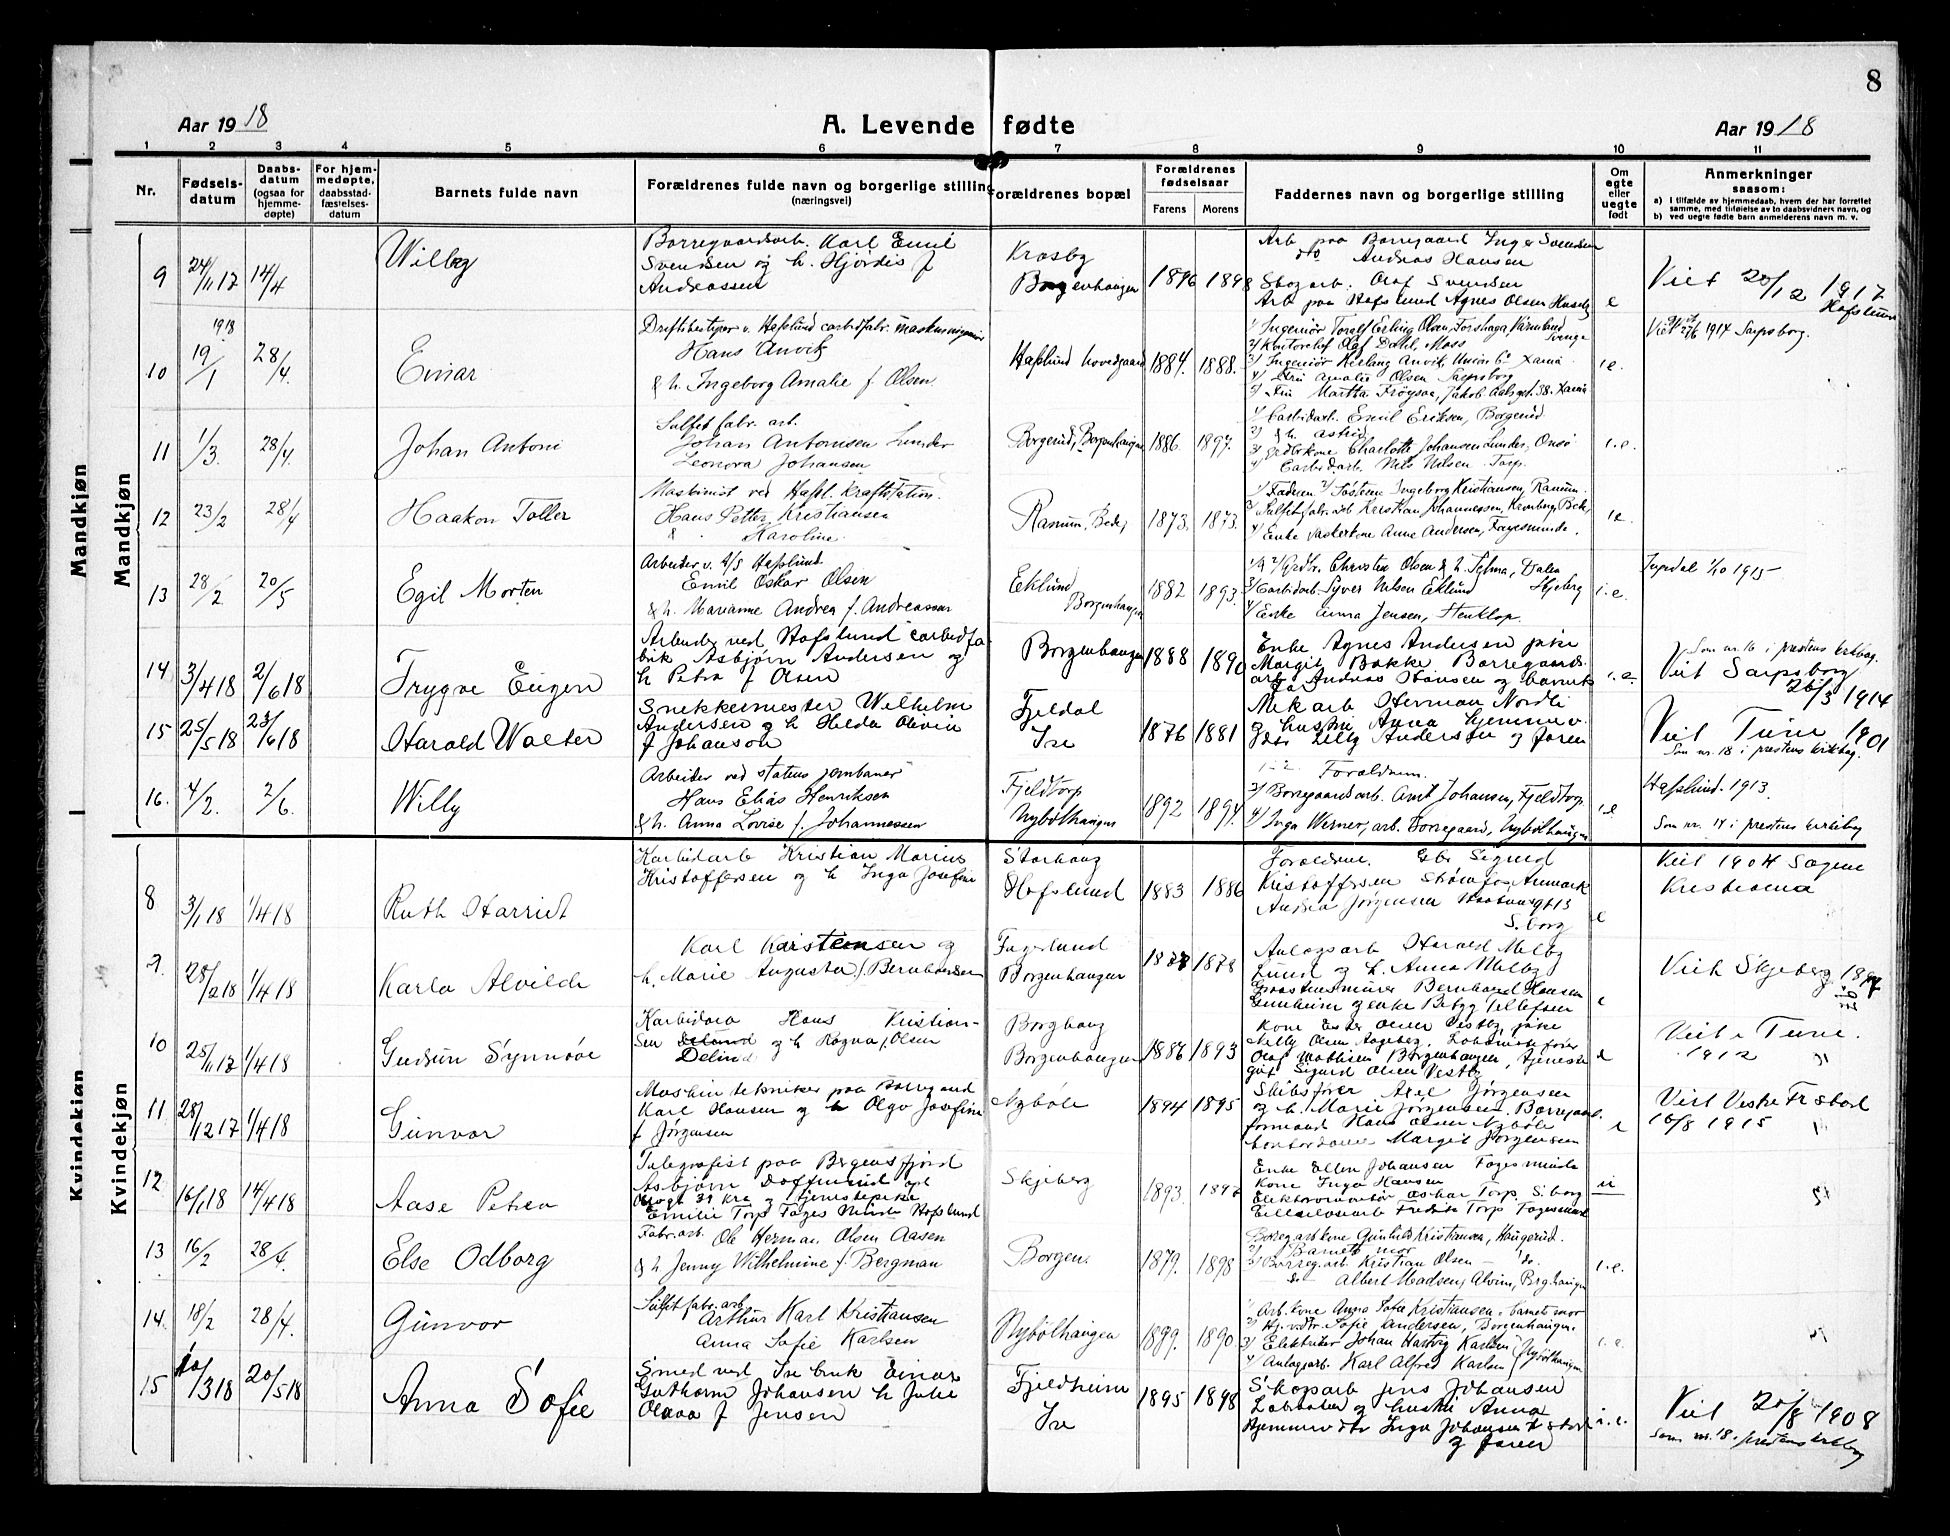 8
Aar 1918
A. Levende fødte
Aar 1918
1 2 3 4 5 6 7 8 9 10 11
Nr.
Fødsels-
datum
Daabs-
datum
(ogsaa for
hjemme-
døpte)
For hjem-
medøpte,
daabsstad-
fæstelses-
datum
Barnets fulde navn
Forældrenes fulde navn og borgerlige stilling
(næringsvei)
Forældrenes bopæl
Forældrenes
fødselsaar
Farens Morens
Faddernes navn og borgerlige stilling
Om
egte
eller
uegte
født
Anmerkninger
saasom:
a) I tilfælde av hjemmedaab, hvem der har forrettet
samme, med tilføielse av to daabsvidners navn, og
b) ved uegte fødte barn anmelderens navn m. v.
Mandkjøn
Mandkjøn
9
24/11 17
14/4
Willy
Borregaardsarb. Karl Emil
Svendsen og h. Hjørdis f
Andreassen
Krosby
Borgenhaugen
1896 1898
Arb paa Borregaard Inga Svendsen
do Andreas Hansen
Skogarb. Olaf Svendsen
Arb paa Hafslund Agnes Olsen
e
Viet 20/12 1917
Hafslund
10
1918
19/1
28/4.
Einar
Hans Anvik
& h. Ingeborg Amalie f. Olsen
Hafslund hovedgaard
1884. 1888.
1/ Ingeniør Toralf Erling Olsen, Forshaga
2/ Kontorchef Olaf Dahl, Moss
3/ Ingeniør Anvik, Union Co
4/ Amalie Olsen Sarpsborg
i.e.
1914 Sarpsborg.
11
1/3.
28/4.
Johan Antoni
Sulfitfabr. arb.
Johan Antonsen Lunder
Leonora Johansen
Borgerud, Borgenhaugen
1886. 1897.
1/ Carbidarb. Emil Eriksen, Borgerud
2/ & h. Astrid
3/ Charlotte Johansen Lunder, Onsø
4/ Carbidarb. Nils Nilsen Torp.
i.e.
12
23/2
28/4
Haakon Toller
Maskinist ved Hafsl. Kraftstation.
Hans Petter Kristiansen
& Karoline.
1873. 1873.
4/ Enke Vaskerkone Anne Andersen, Fagesminde.
i.e.
13
28/2
20/5
Egil Morten
Arbeider v. A/S Hafslund
Emil Oskar Olsen
& h. Marianne Andrea f. Andreassen
Eklund
Borgenhaugen
1882 1893.
1/ & 2/ Christen Olsen & h. Selma, Dalen
3/ Carbidarb. Syver Nilsen Eklund Skjeberg
4/ Enke Anna Jensen,
i.e.
1/10 1915
14
3/4 18
2/6 18
Trygve Eugen
Arbeider ved Hafslund carbidfa-
brik Asbjørn Andersen og
h Petra f Olsen
Borgenhaugen
1888 1890
Enke Agnes Andersen pike
Margit Bakke Borregaards
arb Andreas Hansen og barnets
far
i.e.
Som nr. 16 i prestens kirkbog.
Viet Sarpsborg
26/3 1914
15
25/5 18
23/6 18
Harald Walter
Snekkermester Wilhelm
Andersen og h Helda Olivia
f Johanson
Fjeldal
Ise
1876 1881
Mek arb Herman Nordli
og hustru Anna hjemmev.
Lilly Andersen og faren
Viet Tune 1901
Som nr. 18 i prestens kirkbog.
16.
4/2.
2/6.
Willy
Arbeider ved statens jernbaner
Hans Elias Henriksen
& h. Anna Lovise f. Johannessen
Fjeldtorp
Nybølhaugen
1892 1894.
1-2. Forældrene.
3/ Borregaardsarb. Arnt Johansen, Fjeldtorp.
4/ Inga Werner, arb. Borregaard, Nybølhaugen
i.e
Hafslund. 1913.
Som nr. 17 i prestens kirkebog
Kvindekjøn
Kvindekjøn
8
3/1 18
1/4 18
Ruth Harriet
Karbidarb Kristian Marius
Kristoffersen og h Inga Josefine
Storhaug
Hafslund
1883 1886
Forældrene. Sigurd
Kristoffersen
Andrea Jørgensen
S.borg
e
Viet 1904 Sagene
Kristiania
9.
28/2 18
1/4 18
Karla Alvilde
Karl Karstensen og
h. Marie Augusta f. Bernhardsen
Fagerlund
Borgenhaugen
1878
Anlagsarb Harald Melby
Lund og h. Anna Melby
Graastensmurer Bernhard Hansen
e
Viet Skjeberg
10
25/11 17
1/4 18
Gudrun Synnøve
Karbidarb Hans Kristian-
sen og h Ragna f. Olsen
Delind
Borghaug
Borgenhaugen
1886 1893
Kone Ester Olsen Vestby, pike
Nelly Olsen
Olaf Mathisen Borgenhaugen, tjeneste
gut Sigurd Olsen Vestby
e
Viet i Tune.
1912
11
28/12 17
1/4 18
Gunvor
Maskintekniker paa Borregaard
Karl Hansen og h Olga Josefine
f Jørgensen
Nybøle
1894 1895
Skibsfører Axel Jørgensen
og h. Marie Jørgensen. Borregaards
formand Hans Olsen Nybøle
kontordame Margit Jørgensen
Viet Vestre Fr.stad
10/8 1915
12
16/1 18
14/4 18
Aase Petra
Telegrafist paa Bergensfjord
Asbjørn
tjenestepike
Emilie Torp Fagesminde Hafslund
Skjeberg
1893.
Enke Ellen Johansen Fagesminde
Kone Inga Hansen
Elektromontør Oskar Torp S.borg
Fredrik Torp Fagesminde
u
13
16/2
28/4.
Else Odborg
Fabr. arb. Ole Herman Olsen Aasen
& h Jenny Wilhelmine f. Bergman
Borgen.
1879. 1898
Borreg.arb kone Gunhild Kristiansen, Haugerud.
2/ Barnets mor
3/ Borreg. arb. Kristian Olsen — do.
do Albert Madsen, Alvim, Borghaugen
i.e.
14.
18/2
28/4.
Gunvor
Sulfitfabr. arb
Arthur Karl Kristiansen
Anna Sofie Karlsen
Nybølhaugen
1899. 1890.
1/ Arb. kone Anna Sofie Kristiansen. barnets mor
2/ Sofie Andersen, Borgenhaugen.
3/ Elektriker Johan Hartvig Karlsen
4/ Anlagsarb. Karl Alfred Karlsen Nybølhaugen
i.e.
15
10/3 18
20/5 18
Anna Sofie
Smed ved Ise bruk Einar
Guthorm Johansen h Julie
Olava f Jensen
Fjeldheim
Ise
1895 1898
Skogarb Jens Johansen
og hustru Anna
Hjemmev dtr Inga Johansen
og faren
i.e.
Viet 20/8 1908
Som nr. 18. prestens kirkbog